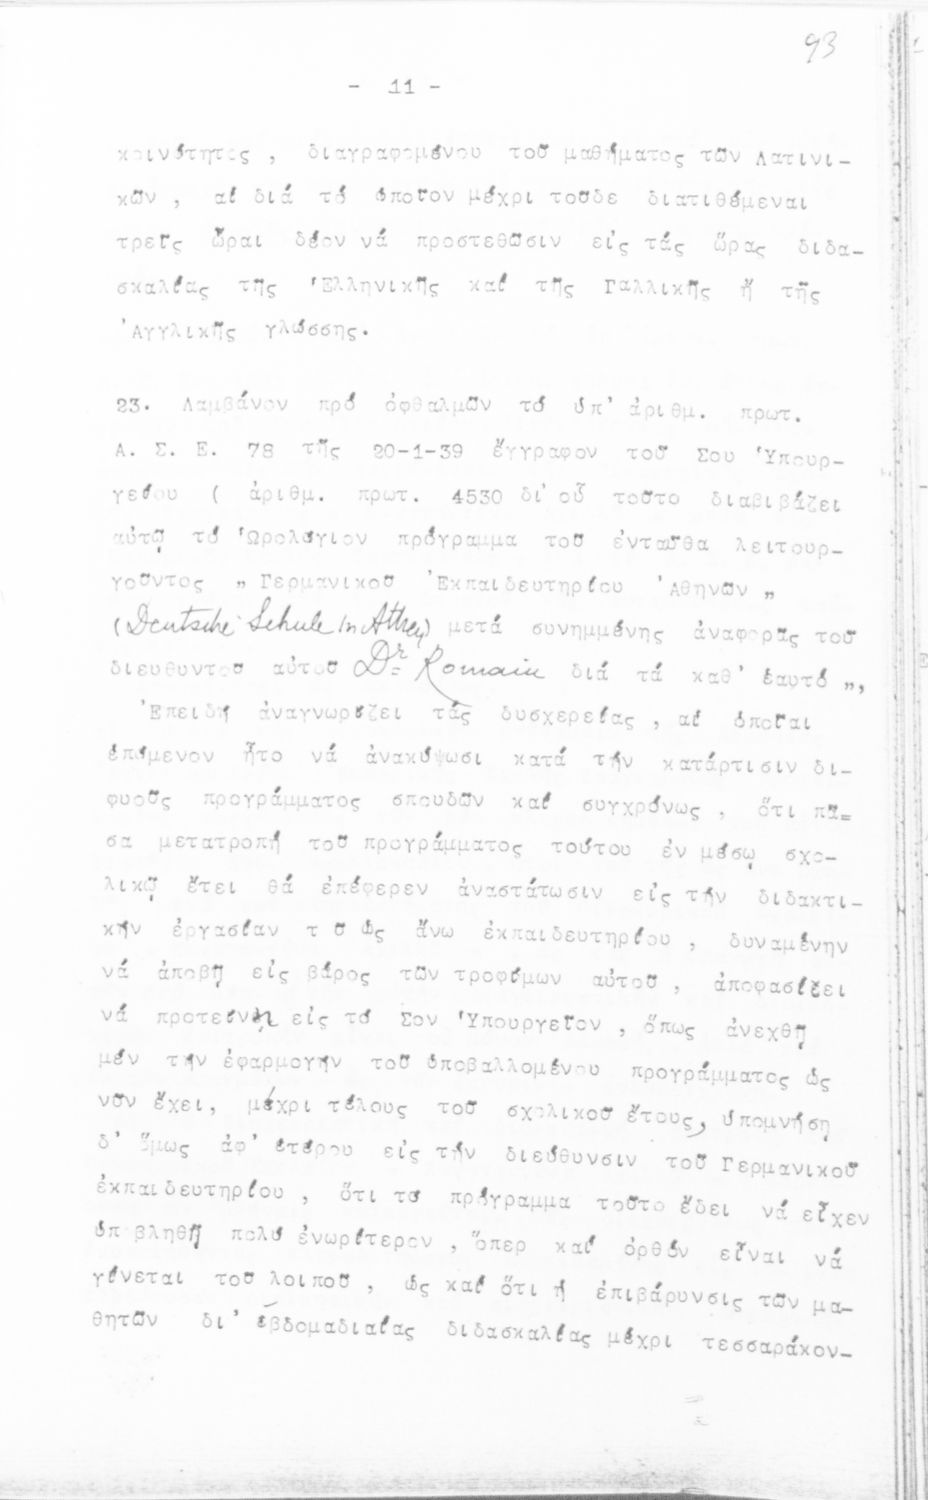 93
- 11 -
κοινότητος , διαγραφομένου τοῦ μαθήματος τῶν Λατινι-
κῶν , αἱ διά τό ὁποῖον μέχρι τοῦδε διατιθέμεναι
τρεῖς ὧραι δέον νά προστεθῶσιν εἰς τάς ὥρας διδα-
σκαλίας τῆς Ἑλληνικῆς καί τῆς Γαλλικῆς ἤ τῆς
Ἀγγλικῆς γλώσσης.
23. Λαμβάνον πρό ὀφθαλμῶν τό ὑπ' ἀριθμ. πρωτ.
Α. Σ. Ε. 78 τῆς 20-1-39 ἔγγραφον τοῦ Σου Ὑπουρ-
γείου ( ἀριθμ. πρωτ. 4530 δι' οὗ τοῦτο διαβιβάζει
αὐτῷ τό Ὡρολόγιον πρόγραμμα τοῦ ἐνταῦθα λειτουρ-
γοῦντος „ Γερμανικοῦ Ἐκπαιδευτηρίου Ἀθηνῶν „
(Deutsche Schule in Athen) μετά συνημμένης ἀναφορᾶς τοῦ
διευθυντοῦ αὐτοῦ Dr Romain διά τά καθ' ἑαυτό „,
Ἐπειδή ἀναγνωρίζει τάς δυσχερείας , αἱ ὁποῖαι
ἑπόμενον ἦτο νά ἀνακύψωσι κατά τήν κατάρτισιν δι-
φυοῦς προγράμματος σπουδῶν καί συγχρόνως , ὅτι πᾶ=
σα μετατροπή τοῦ προγράμματος τούτου ἐν μέσῳ σχο-
λικῷ ἔτει θά ἐπέφερεν ἀναστάτωσιν εἰς τήν διδακτι-
κήν ἐργασίαν τ ῦ ὡς ἄνω ἐκπαιδευτηρίου , δυναμένην
νά ἀποβῇ εἰς βάρος τῶν τροφίμων αὐτοῦ , ἀποφασίζει
νά προτείνῃ εἰς τό Σον Ὑπουργεῖον , ὅπως ἀνεχθῇ
μέν τήν ἐφαρμογήν τοῦ ὑποβαλλομένου προγράμματος ὡς
νῦν ἔχει, μέχρι τέλους τοῦ σχολικοῦ ἔτους, ὑπομνήσῃ
δ' ὅμως ἀφ' ἑτέρου εἰς τήν διεύθυνσιν τοῦ Γερμανικοῦ
ἐκπαιδευτηρίου , ὅτι τό πρόγραμμα τοῦτο ἔδει νά εἶχεν
ὑποβληθῇ πολύ ἐνωρίτερον , ὅπερ καί ὀρθόν εἶναι νά
γίνεται τοῦ λοιποῦ , ὡς καί ὅτι ἡ ἐπιβάρυνσις τῶν μα-
θητῶν δι' ἑβδομαδιαίας διδασκαλίας μέχρι τεσσαράκον-